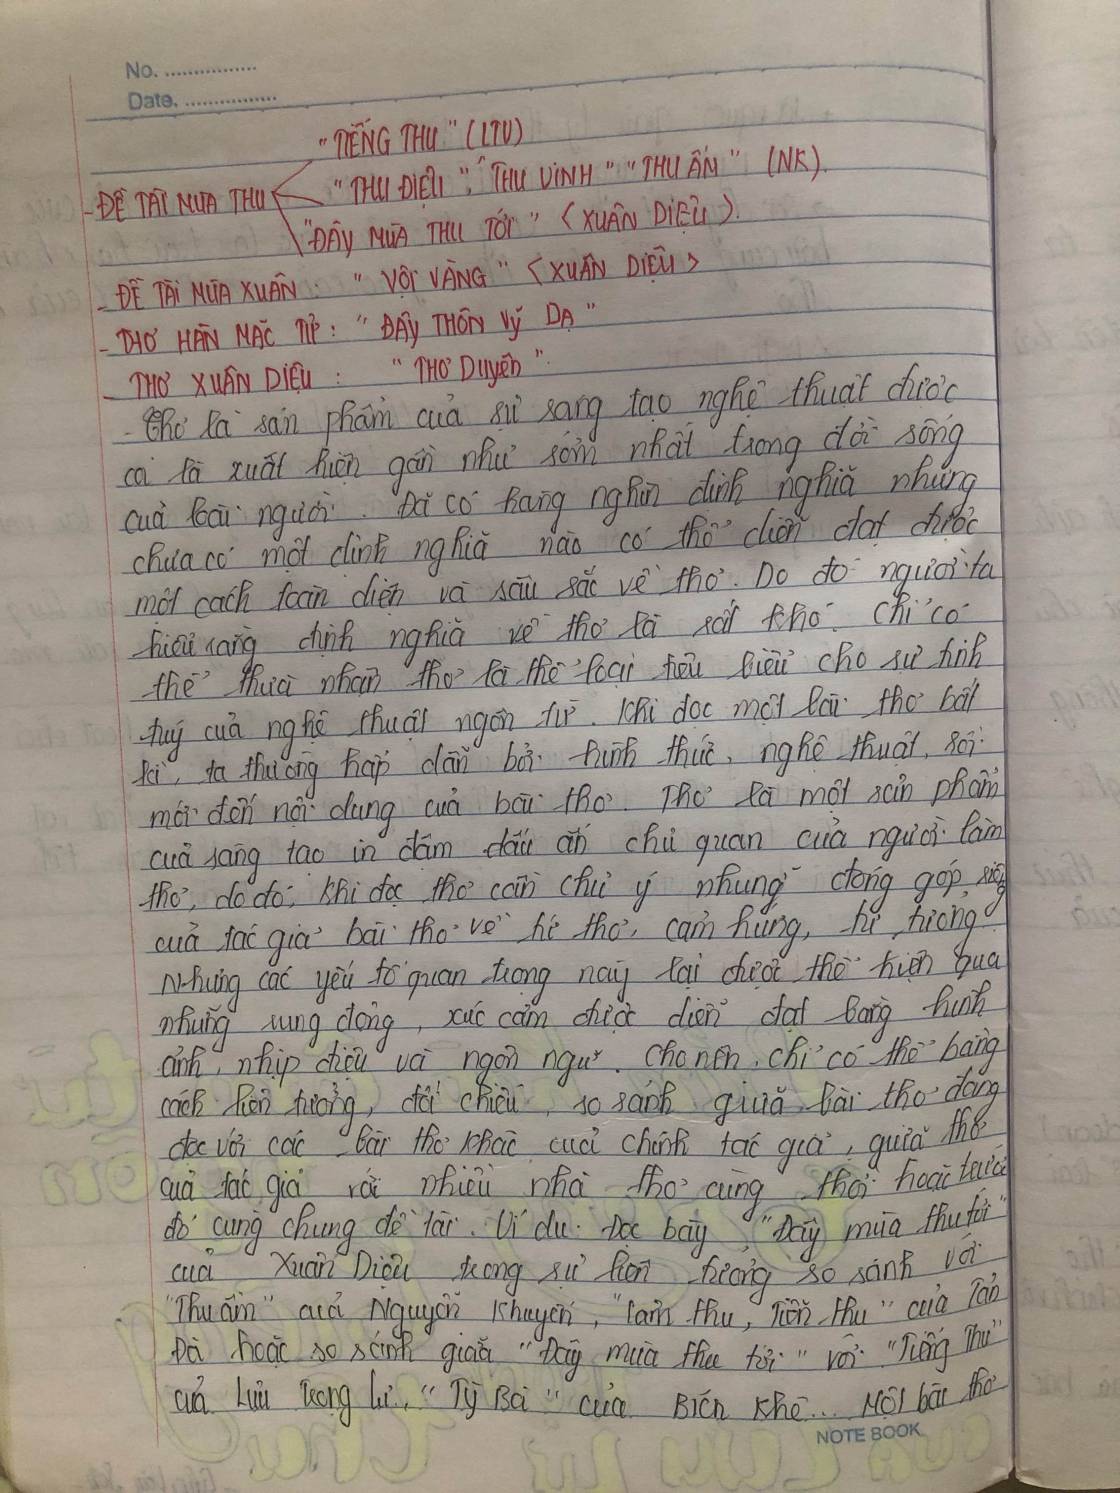 No. ................
Date. ................
"TIẾNG THU" (LTU)
- ĐỀ TÀI MÙA THU "THU ĐIẾU", "THU VỊNH" "THU ẨM" (NK).
"ĐÂY MÙA THU TỚI" (XUÂN DIỆU).
- ĐỀ TÀI MÙA XUÂN: "VỘI VÀNG" (XUÂN DIỆU)
- THƠ HÀN MẶC TỬ: "ĐÂY THÔN VỸ DẠ"
- THƠ XUÂN DIỆU: "THƠ DUYÊN".
- Thơ là sản phẩm của sự sáng tạo nghệ thuật được
coi là xuất hiện gần như sớm nhất trong đời sống
của loài người. Đã có hàng nghìn định nghĩa nhưng
chưa có một định nghĩa nào có thể diễn đạt được
một cách toàn diện và sâu sắc về thơ. Do đó người ta
hiểu rằng định nghĩa về thơ là rất khó. Chỉ có
thể thừa nhận thơ là thể loại tiêu biểu cho sự tinh
tuý của nghệ thuật ngôn từ. Khi đọc một bài thơ bất
kì, ta thường hấp dẫn bởi hình thức, nghệ thuật, rồi
mới đến nội dung của bài thơ. Thơ là một sản phẩm
của sáng tạo in đậm dấu ấn chủ quan của người làm
thơ, do đó, khi đọc thơ cần chú ý những đóng góp riêng
của tác giả bài thơ về tứ thơ, cảm hứng, tư tưởng.
Nhưng các yếu tố quan trọng này lại được thể hiện qua
những rung động, xúc cảm được diễn đạt bằng hình
ảnh, nhịp điệu và ngôn ngữ. Cho nên, chỉ có thể bằng
cách liên tưởng, đối chiếu, so sánh giữa bài thơ đang
đọc với các bài thơ khác của chính tác giả, giữa thơ
của tác giả với nhiều nhà thơ cùng thời hoặc trước
đó cùng chung đề tài. Ví dụ: Đọc bày "Đây mùa thu tới"
của Xuân Diệu trong sự liên tưởng so sánh với
"Thu ẩm" của Nguyễn Khuyến, "Cảm thu, Tiễn thu" của Tản
Đà hoặc so sánh giữa "Đây mùa thu tới" với "Tiếng Thu"
của Lưu Trọng Lư, "Tỳ Bà" của Bích Khê... Một bài thơ
NOTE BOOK